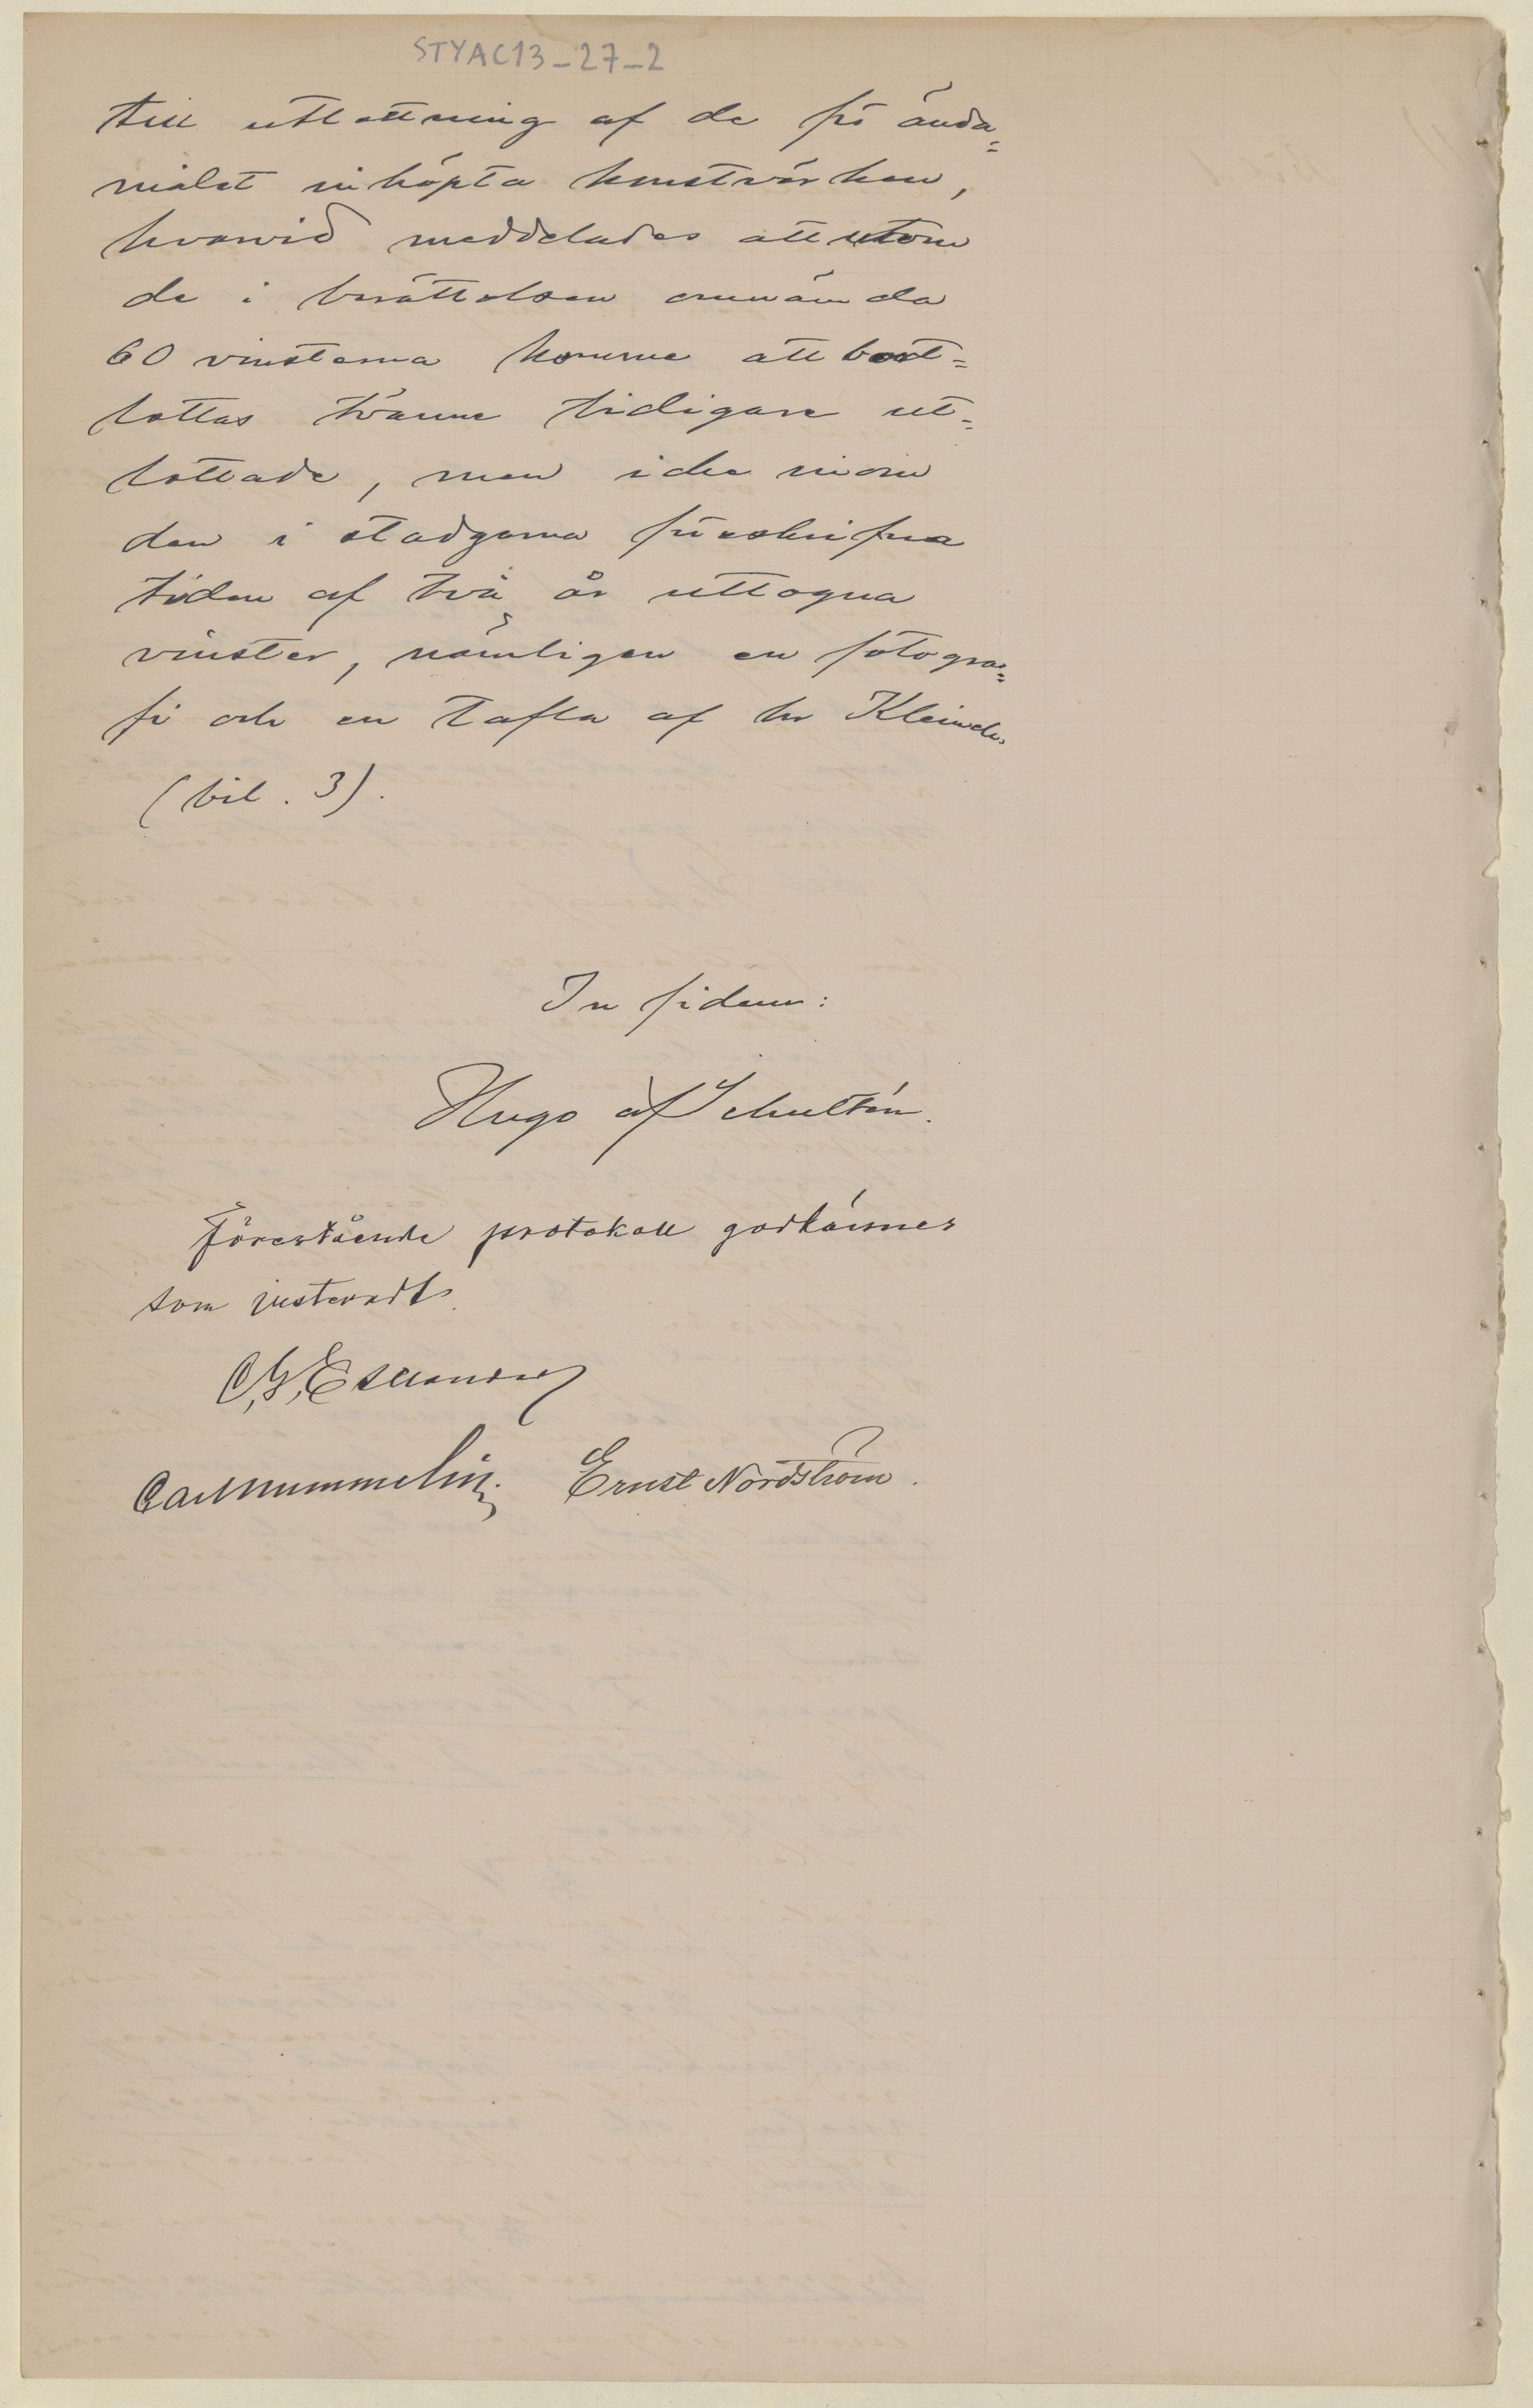 STYAC13_27_2
till utlottning af de för ända=
målet inköpta konstvärken,
hvarvid meddelades att utom
de i berättelsen omnämda
60 vinsterna komme att bort=
lottas tvänne tidigare ut=
lottade, men icke inom
den i stadgarna föreskrifna
tiden af två år uttagna
vinster, nämligen en fotogra=
fi och en tafla af hr Kleineh.
(bil. 3).
In fidem:
Hugo af Schultén.
Förestående protokoll godkännes
som justeradt.
C. G. Estlander
Carl Nummelin. Ernst Nordström.